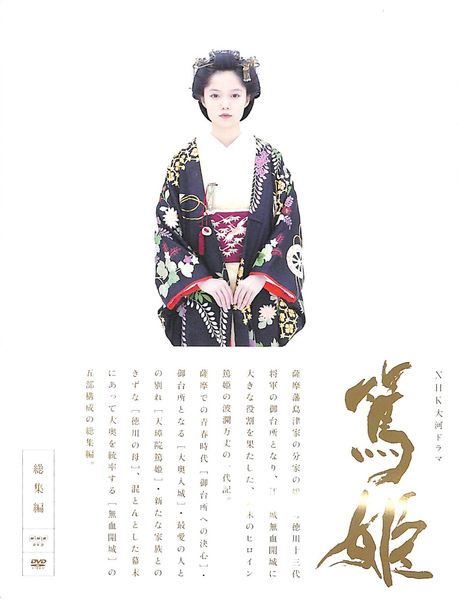 NHK大河ドラマ
篤姫
薩摩藩島津家の分家の
徳川十三代
将軍の御台所となり、
城無血開城に
大きな役割を果たした、
末のヒロイン
篤姫の波瀾万丈の一代記。
薩摩での青春時代［御台所への決心］・
御台所となる［大奥入城］・最愛の人と
の別れ［天璋院篤姫］・新たな家族との
きずな［徳川の母］、混とんとした幕末
にあって大奥を統率する［無血開城］の
五部構成の総集編。
総集編
NHK
DVD